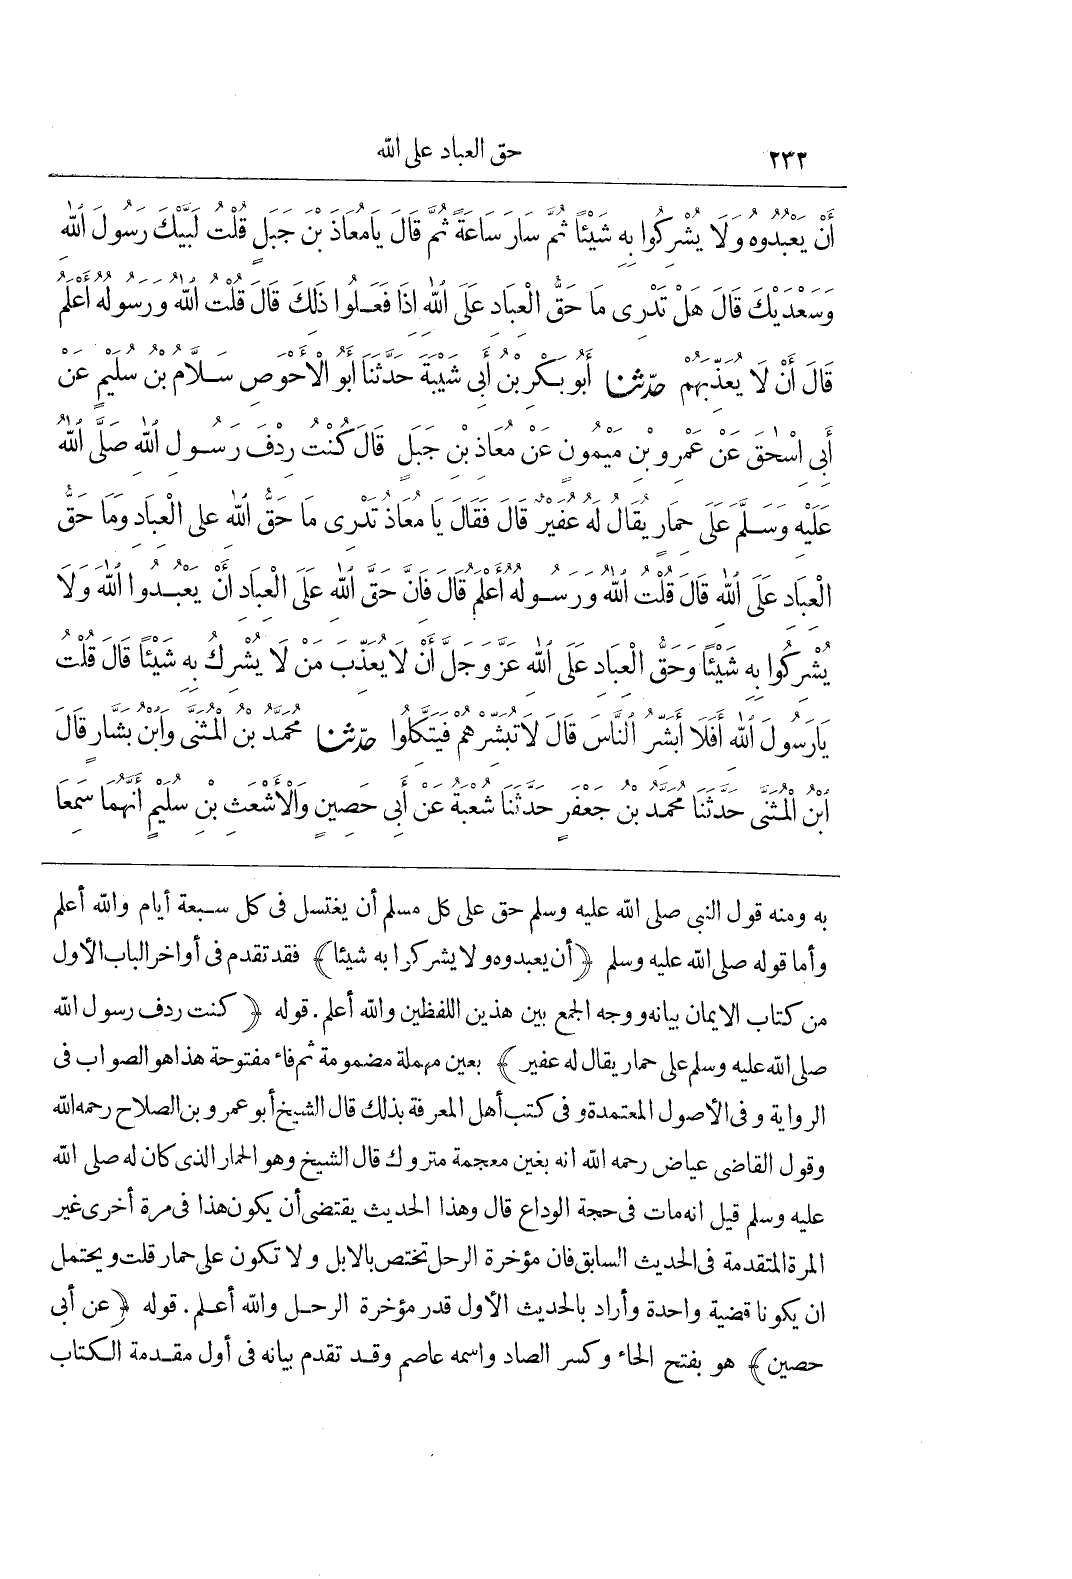 ٢٣٢ حق العباد على الله
أَنْ يَعْبُدُوهُ وَلَا يُشْرِكُوا بِهِ شَيْئًا ثُمَّ سَارَ سَاعَةً ثُمَّ قَالَ يَامُعَاذَ بْنَ جَبَلٍ قُلْتُ لَبَّيْكَ رَسُولَ اللهِ
وَسَعْدَيْكَ قَالَ هَلْ تَدْرِى مَا حَقُّ الْعِبَادِ عَلَى اللهِ إِذَا فَعَلُوا ذَلِكَ قَالَ قُلْتُ اللهُ وَرَسُولُهُ أَعْلَمُ
قَالَ أَنْ لَا يُعَذِّبَهُمْ حَدَّثَنَا أَبُو بَكْرِ بْنُ أَبِى شَيْبَةَ حَدَّثَنَا أَبُو الْأَحْوَصِ سَلَّامُ بْنُ سُلَيْمٍ عَنْ
أَبِى إِسْحٰقَ عَنْ عَمْرِو بْنِ مَيْمُونٍ عَنْ مُعَاذِ بْنِ جَبَلٍ قَالَ كُنْتُ رِدْفَ رَسُولِ اللهِ صَلَّى اللهُ
عَلَيْهِ وَسَلَّمَ عَلَى حِمَارٍ يُقَالُ لَهُ عُفَيْرٌ قَالَ فَقَالَ يَا مُعَاذُ تَدْرِى مَا حَقُّ اللهِ عَلَى الْعِبَادِ وَمَا حَقُّ
الْعِبَادِ عَلَى اللهِ قَالَ قُلْتُ اللهُ وَرَسُولُهُ أَعْلَمُ قَالَ فَإِنَّ حَقَّ اللهِ عَلَى الْعِبَادِ أَنْ يَعْبُدُوا اللهَ وَلَا
يُشْرِكُوا بِهِ شَيْئًا وَحَقُّ الْعِبَادِ عَلَى اللهِ عَزَّ وَجَلَّ أَنْ لَا يُعَذِّبَ مَنْ لَا يُشْرِكُ بِهِ شَيْئًا قَالَ قُلْتُ
يَارَسُولَ اللهِ أَفَلَا أُبَشِّرُ النَّاسَ قَالَ لَا تُبَشِّرْهُمْ فَيَتَّكِلُوا حَدَّثَنَا مُحَمَّدُ بْنُ الْمُثَنَّى وَابْنُ بَشَّارٍ قَالَ
ابْنُ الْمُثَنَّى حَدَّثَنَا مُحَمَّدُ بْنُ جَعْفَرٍ حَدَّثَنَا شُعْبَةُ عَنْ أَبِى حَصِينٍ وَالْأَشْعَثِ بْنِ سُلَيْمٍ أَنَّهُمَا سَمِعَا
به ومنه قول النبى صلى الله عليه وسلم حق على كل مسلم أن يغتسل فى كل سبعة أيام والله أعلم
وأما قوله صلى الله عليه وسلم ﴿أن يعبدوه ولا يشركوا به شيئا﴾ فقد تقدم فى أواخر الباب الأول
من كتاب الايمان بيانه ووجه الجمع بين هذين اللفظين والله أعلم. قوله ﴿كنت ردف رسول الله
صلى الله عليه وسلم على حمار يقال له عفير﴾ بعين مهملة مضمومة ثم فاء مفتوحة هذا هو الصواب فى
الرواية وفى الأصول المعتمدة وفى كتب أهل المعرفة بذلك قال الشيخ أبو عمرو بن الصلاح رحمه الله
وقول القاضى عياض رحمه الله انه بغين معجمة متروك قال الشيخ وهو الحمار الذى كان له صلى الله
عليه وسلم قيل انه مات فى حجة الوداع قال وهذا الحديث يقتضى أن يكون هذا فى مرة أخرى غير
المرة المتقدمة فى الحديث السابق فان مؤخرة الرحل تختص بالابل ولا تكون على حمار قلت ويحتمل
ان يكونا قضية واحدة وأراد بالحديث الأول قدر مؤخرة الرحل والله أعلم. قوله ﴿عن أبى
حصين﴾ هو بفتح الحاء وكسر الصاد واسمه عاصم وقد تقدم بيانه فى أول مقدمة الكتاب